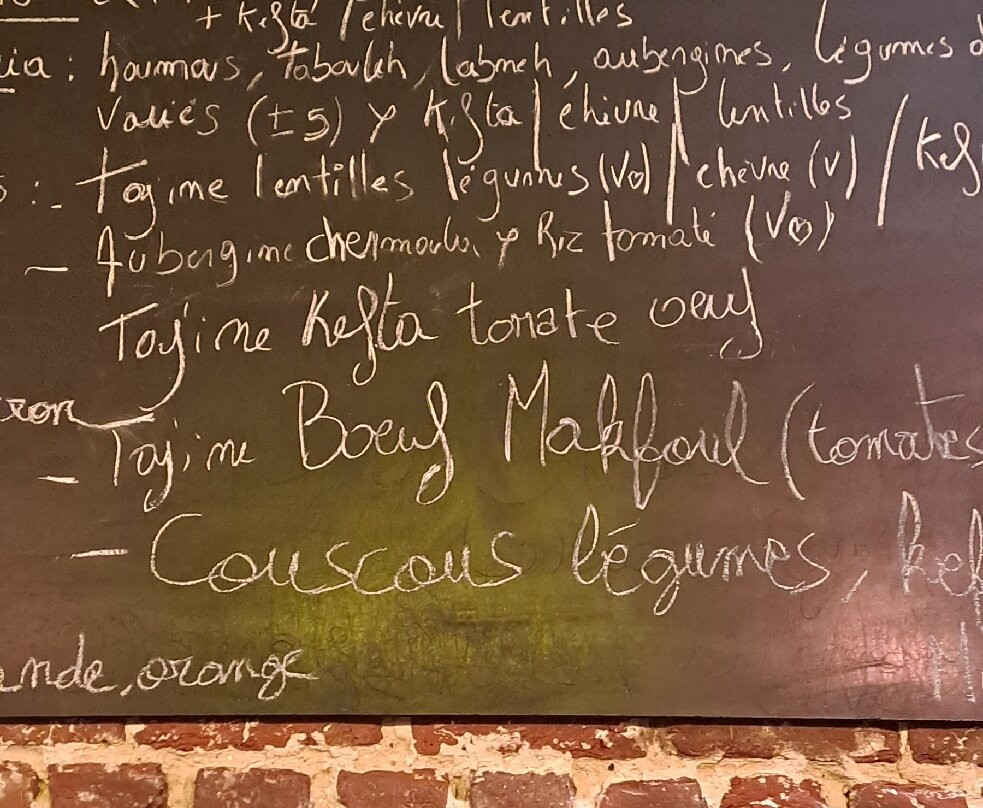 + Kefta / chèvre / lentilles
ia : houmous, tabouleh, labneh, aubergines, légumes
variés (±5) y Kefta / chèvre / lentilles
: - Tagine lentilles légumes (V♡) / chèvre (V) / Kef
- Aubergine chermoula y Riz tomaté (V♡)
Tajine Kefta tomate oeuf
- Tajine Boeuf Makfoul (tomates
- Couscous légumes, kef
ande, orange